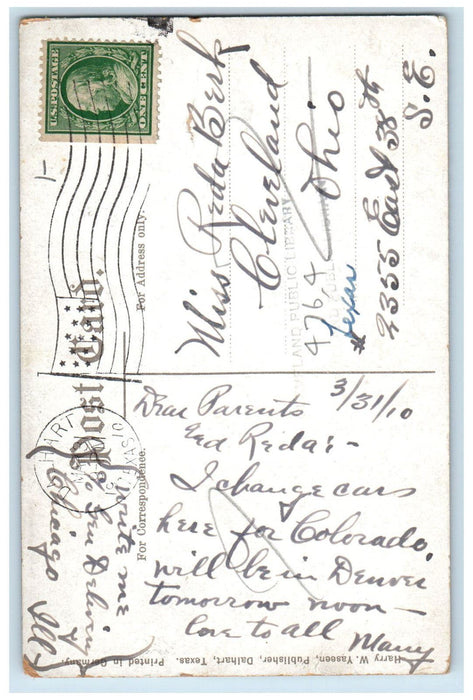 U.S. POSTAGE
ONE CENT
Post Card.
For Address only.
Miss Reda Berk
Cleveland
Ohio
2355 East 38th
S. E.
4764
Texas
LAND PUBLIC LIBRARY
For Correspondence.
3/31/10
Dear Parents
Reda:-
I change cars
here for Colorado,
will be in Denver
tomorrow noon -
love to all
write me
Gen Delivery
Chicago Ill
Harry W. Yasseen, Publisher, Dalhart, Texas. Printed in Germany.